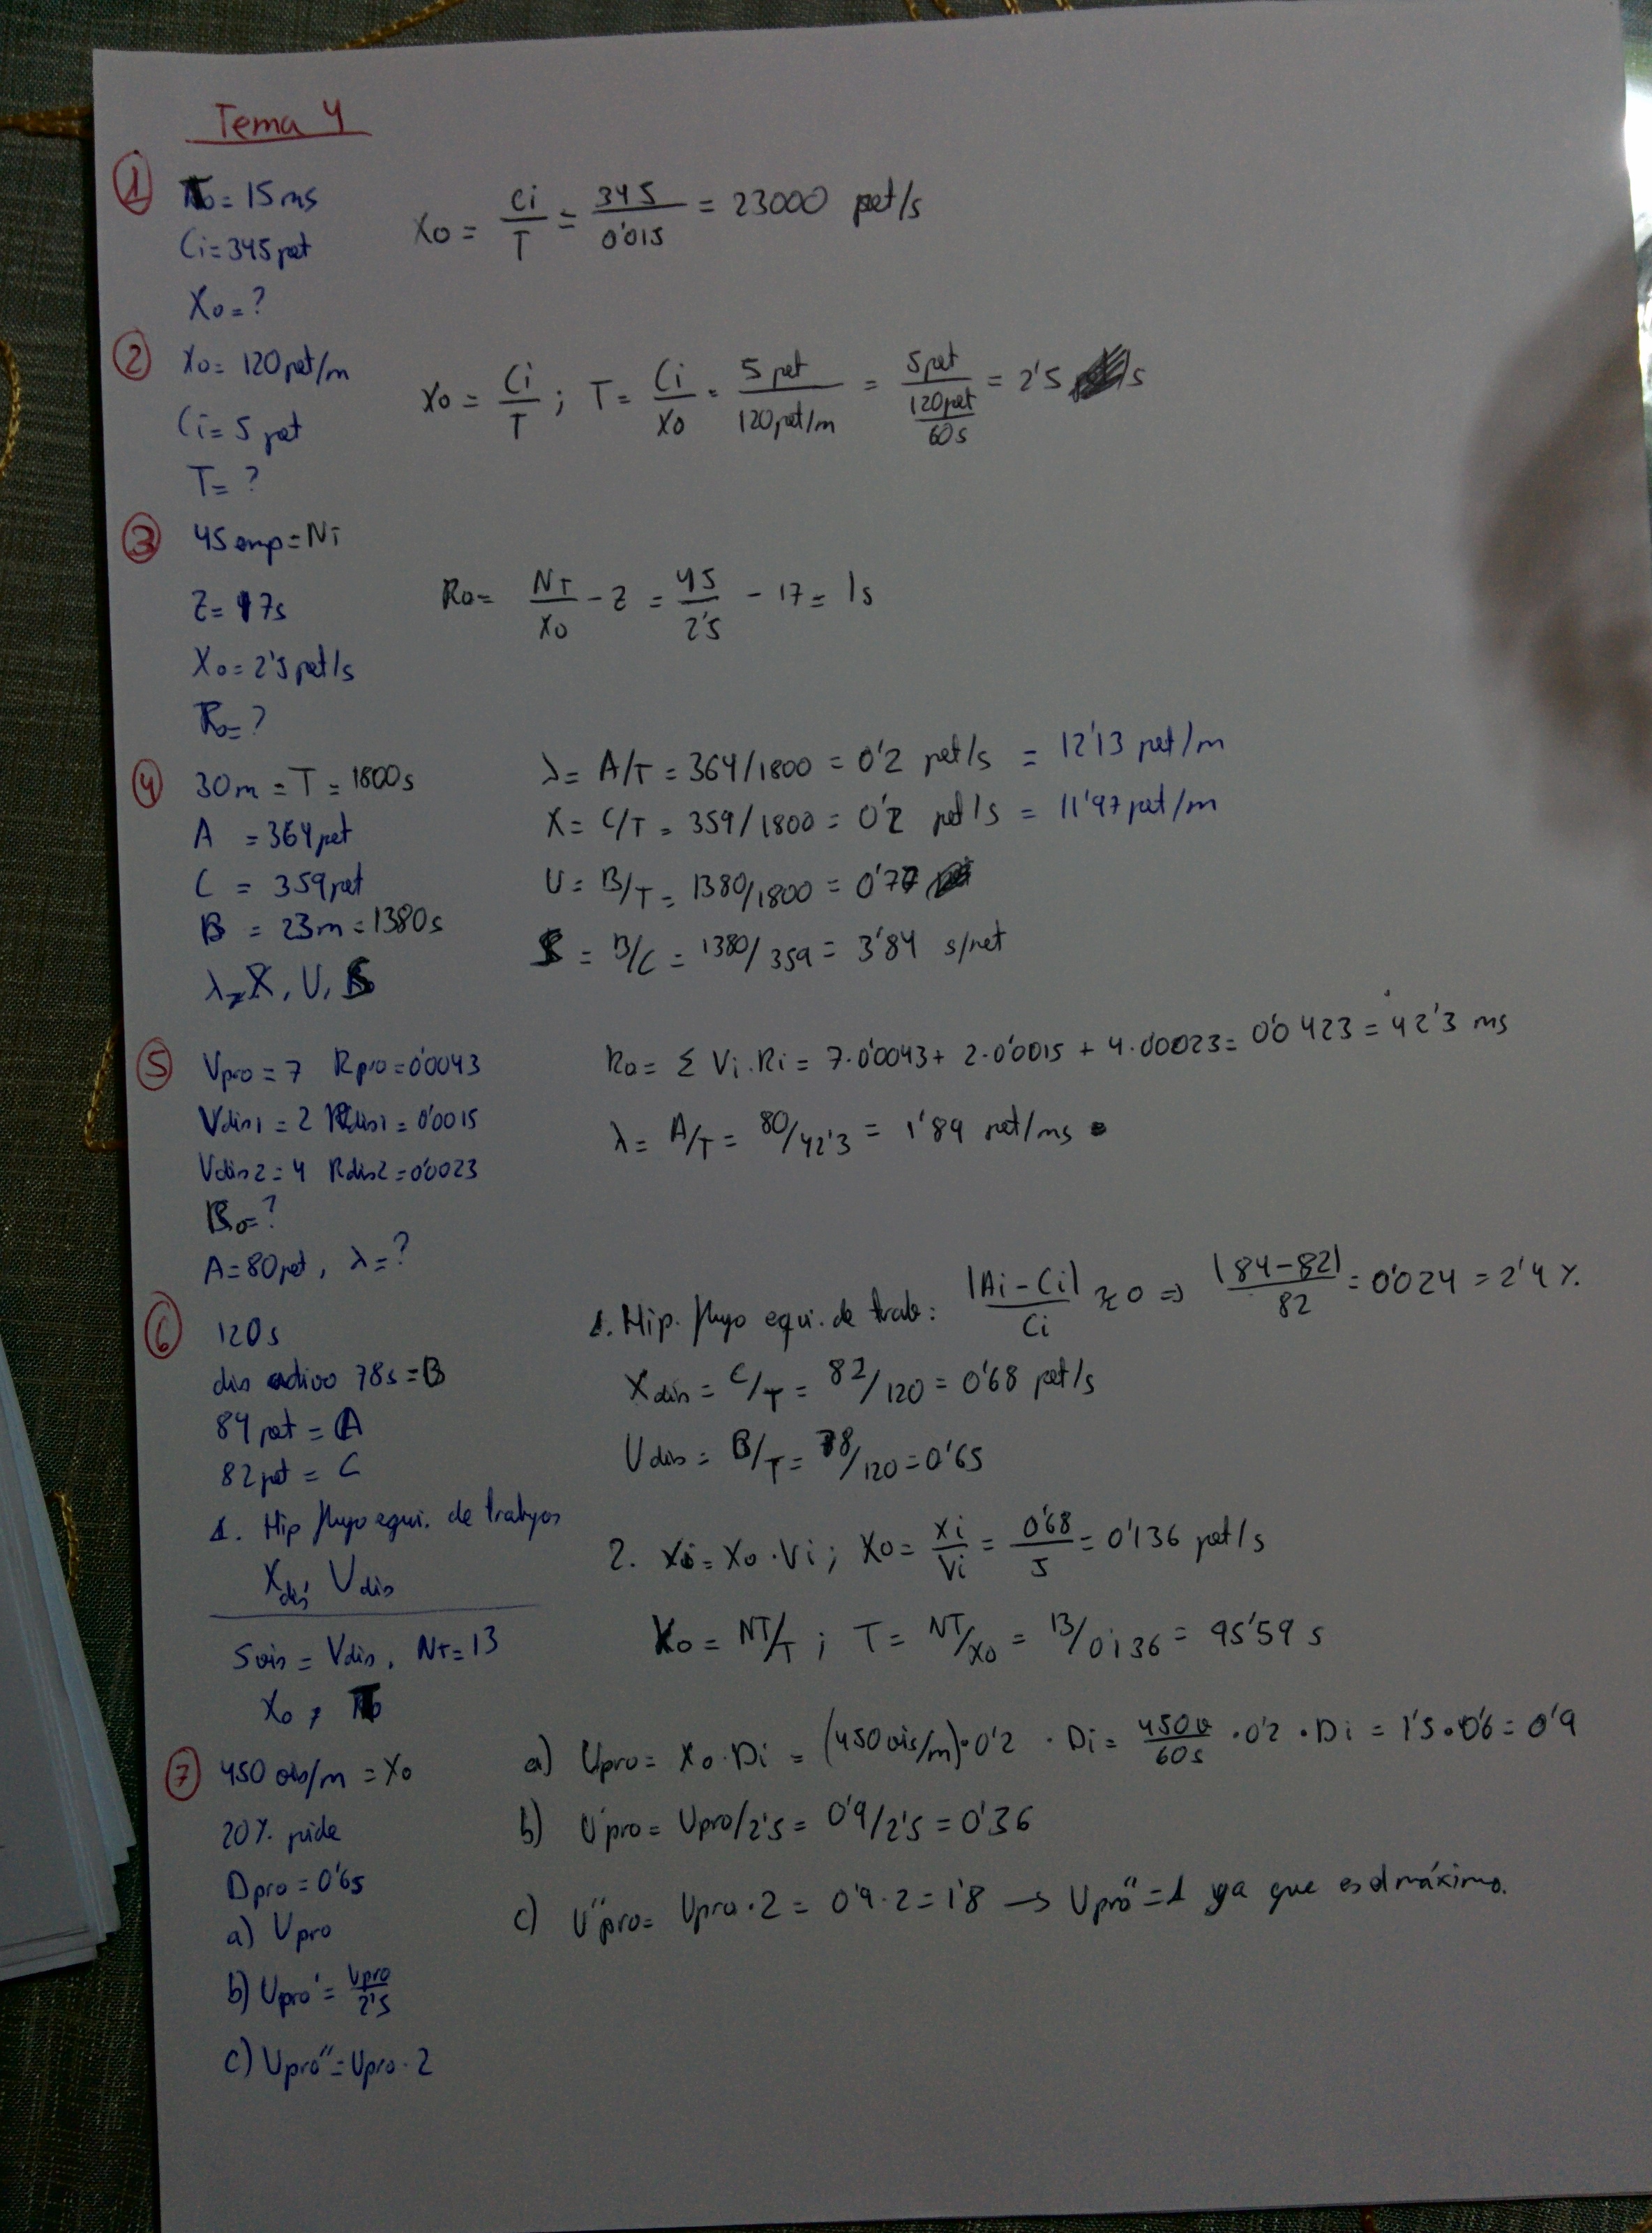 Tema 4
① To = 15 ms
Ci = 345 pet
Xo = ?
Xo = Ci/T = 345/0'015 = 23000 pet/s
② Xo = 120 pet/m
Ci = 5 pet
T = ?
Xo = Ci/T ; T = Ci/Xo = 5 pet/120 pet/m = 5 pet/(120 pet/60 s) = 2'5 s
③ 45 emp = NT
Z = 17s
Xo = 2'5 pet/s
Ro = ?
Ro = NT/Xo - Z = 45/2'5 - 17 = 1s
④ 30m = T = 1800s
A = 364 pet
C = 359 pet
B = 23m = 1380s
λ, X, U, S
λ = A/T = 364/1800 = 0'2 pet/s = 12'13 pet/m
X = C/T = 359/1800 = 0'2 pet/s = 11'97 pet/m
U = B/T = 1380/1800 = 0'77
S = B/C = 1380/359 = 3'84 s/pet
⑤ Vpro = 7 Rpro = 0'0043
Vdis1 = 2 Rdis1 = 0'0015
Vdis2 = 4 Rdis2 = 0'0023
Ro = ?
A = 80 pet, λ = ?
Ro = Σ Vi · Ri = 7·0'0043 + 2·0'0015 + 4·0'0023 = 0'0423 = 42'3 ms
λ = A/T = 80/42'3 = 1'89 pet/ms
⑥ 120s
dis activo 78s = B
84 pet = A
82 pet = C
1. Hip flujo equi. de trabajos
Xdis, Udis
5 vis = Vdis, NT = 13
Xo, To
1. Hip. flujo equi. de trab: |Ai - Ci|/Ci ≈ 0 ⇒ |84-82|/82 = 0'024 = 2'4 %.
Xdis = C/T = 82/120 = 0'68 pet/s
Udis = B/T = 78/120 = 0'65
2. Xi = Xo · Vi ; Xo = Xi/Vi = 0'68/5 = 0'136 pet/s
Xo = NT/T ; T = NT/Xo = 13/0'136 = 95'59 s
⑦ 450 vis/m = Xo
20% pide
Dpro = 0'65
a) Upro
b) Upro' = Upro/2'5
c) Upro'' = Upro · 2
a) Upro = Xo · Di = (450 vis/m) · 0'2 · Di = 450 v/60s · 0'2 · Di = 1'5 · 0'6 = 0'9
b) U'pro = Upro/2'5 = 0'9/2'5 = 0'36
c) U''pro = Upro · 2 = 0'9 · 2 = 1'8 → Upro'' = 1 ya que es el máximo.